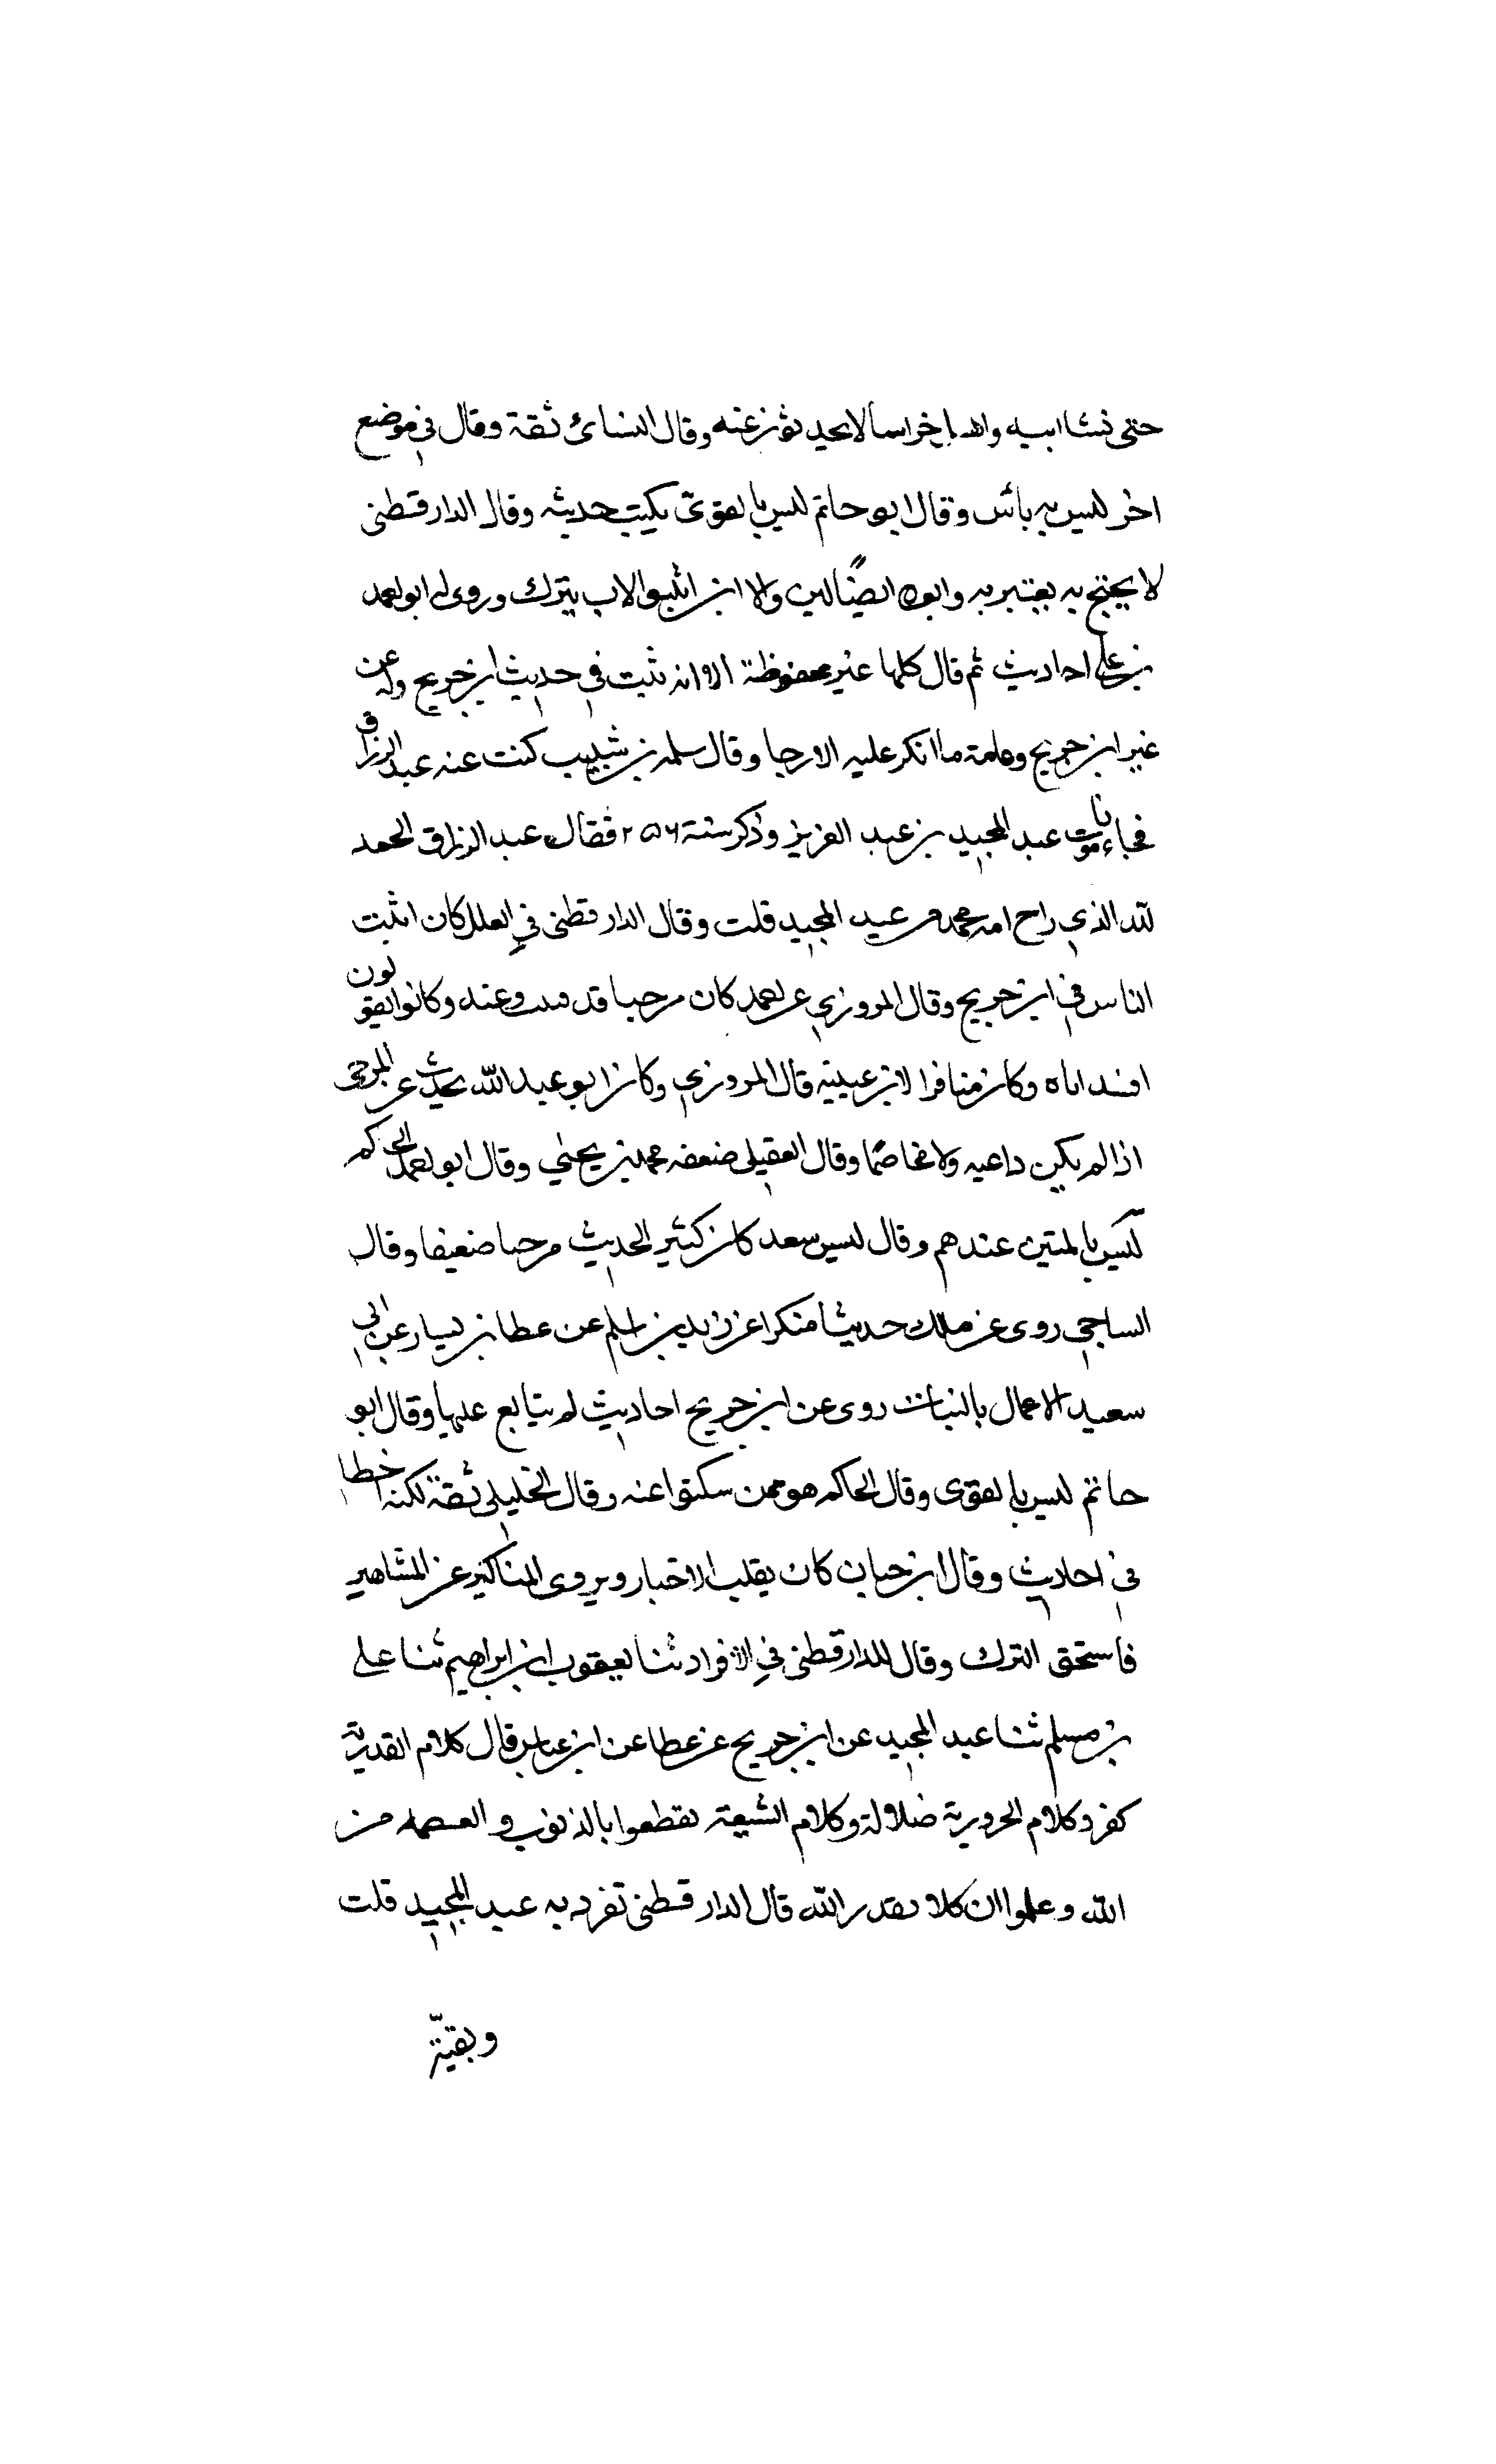 حتى نشا ابنه واهل خراسا لا يحدثون عنه وقال النسائ ثقة وقال في موضع
اخر ليس به بأس وقال ابو حاتم ليس بالقوى يكتب حديثه وقال الدارقطنى
لا يحتج به يعتبر به وابوه ايضًا لين والابن اثبت والاب يترك وروى له ابو احمد
بن على احاديث ثم قال كلها غير محفوظة الا انه ثبت في حديث ابن جريج وله عن
غير ابن جريج وعامة ما انكر عليه الارجا وقال سلمه بن شبيب كنت عند عبد الرزاق
فجاءنا موت عبد المجيد بن عبد العزيز وذكر سنة ٢٥٦ فقال عبد الرزاق الحمد
لله الذي راح امة محمد من عبد المجيد قلت وقال الدارقطنى في العلل كان اثبت
الناس في ابن جريج وقال المروزي عن احمد كان مرجيا قد كتبت عنه وكانوا يقولون
افسد اباه وكان منافرا لابن عيينه قال المروزي وكان ابو عبد الله يحدث عن المرجى
اذا لم يكن داعيه ولا مخاصمًا وقال العقيلى ضعفه محمد بن يحيي وقال ابو احمد الحاكم
ليس بالمتين عندهم وقال ابن سعد كان كثير الحديث مرجيا ضعيفا وقال
الساجي روى عن ملك حديثا منكرا عن زيد بن اسلم عن عطا بن يسار عن ابي
سعيد الاعمال بالنيات روى عن ابن جريج احاديث لم يتابع عليها وقال ابو
حاتم ليس بالقوى وقال الحاكم هو ممن سكتوا عنه وقال الخليلي ثقة لكنه اخطا
في احاديث وقال ابن حبان كان يقلب الاخبار ويروى المناكير عن المشاهير
فاستحق الترك وقال الدارقطنى في الافراد ثنا يعقوب ابن ابراهيم ثنا على
بن مسلم ثنا عبد المجيد عن ابن جريج عن عطا عن ابن عباس قال كلام القدرية
كفر وكلام الحرورية ضلالة وكلام الشيعة تقطعوا بالذنوب والعصمه من
الله وعلموا ان كلا بقدر الله قال الدارقطنى تفرد به عبد المجيد قلت
وبقيّة